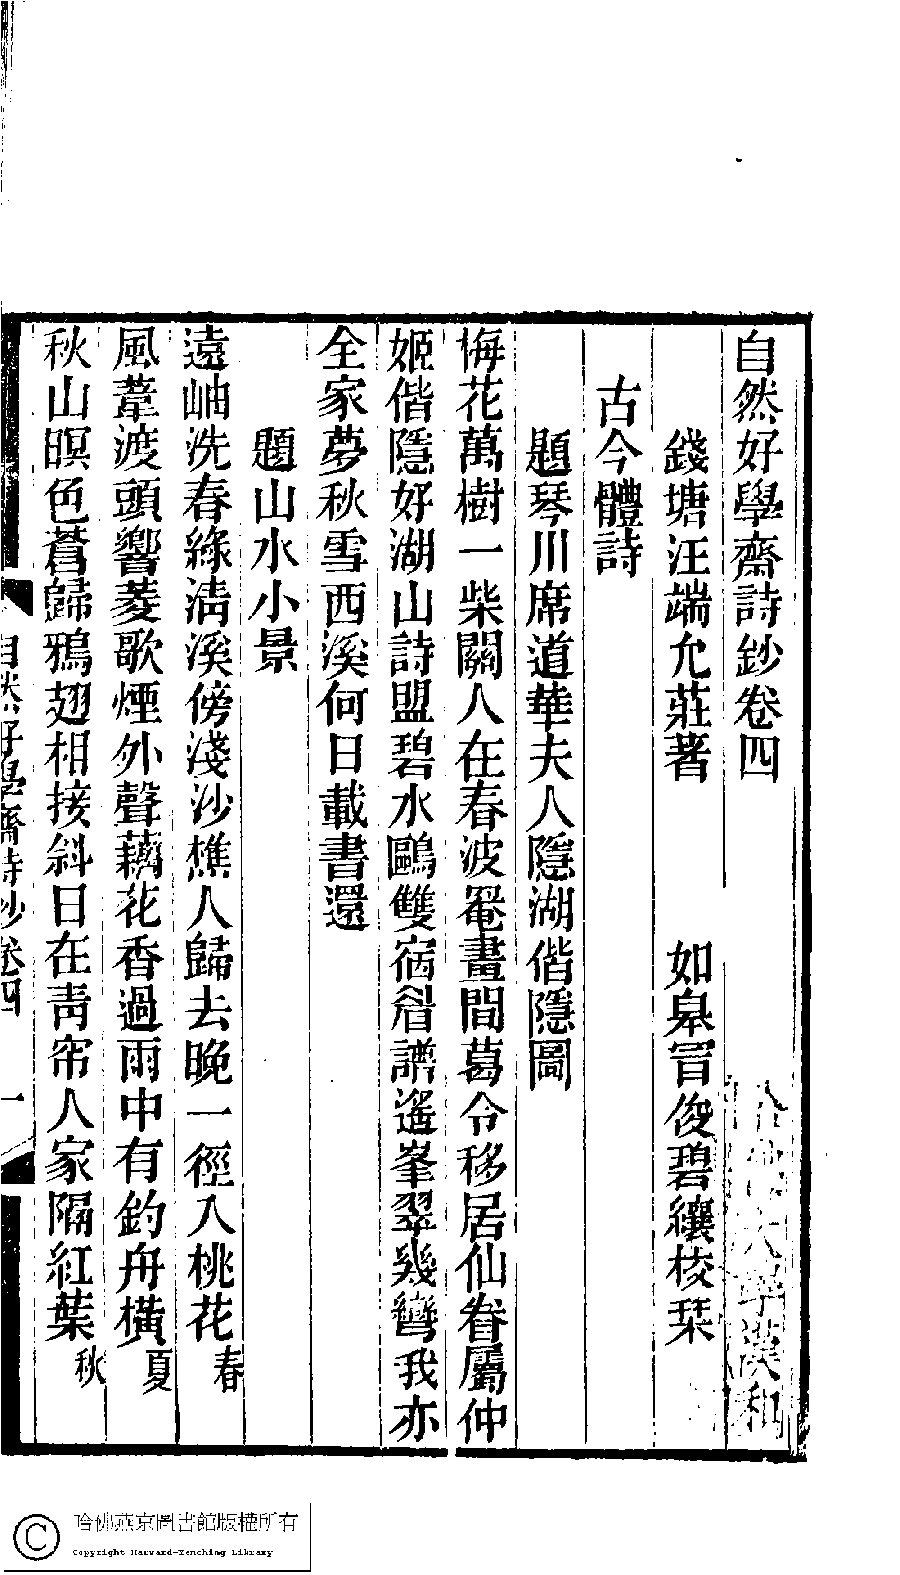 自然好學齋詩鈔卷四
錢塘汪端允莊著　如皋冒俊碧纕校栞
古今體詩
題琴川席道華夫人隱湖偕隱圖
梅花萬樹一柴關人在春波罨畫間葛令移居仙眷屬仲
姬偕隱好湖山詩盟碧水鷗雙宿眉譜遙峯翠幾彎我亦
全家夢秋雪西溪何日載書還
題山水小景
遠岫洗春綠淸溪傍淺沙樵人歸去晚一徑入桃花春
風葦渡頭響菱歌煙外聲藕花香過雨中有釣舟橫夏
秋山暝色蒼歸鴉翅相接斜日在靑帘人家隔紅葉秋
自然好學齋詩鈔卷四　一
哈佛大學漢和
哈佛燕京圖書館版權所有
Copyright Harvard-Yenching Library